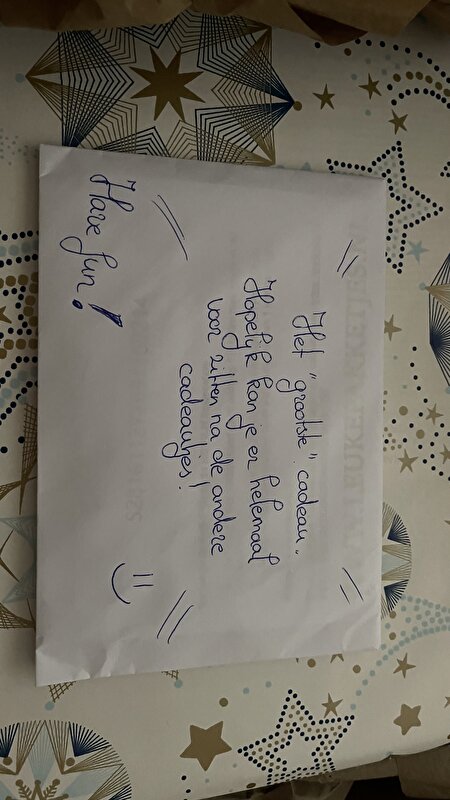 Het "grootste" cadeau.
Hopelijk kan je er helemaal
voor zitten na de andere
cadeautjes!
Have fun!